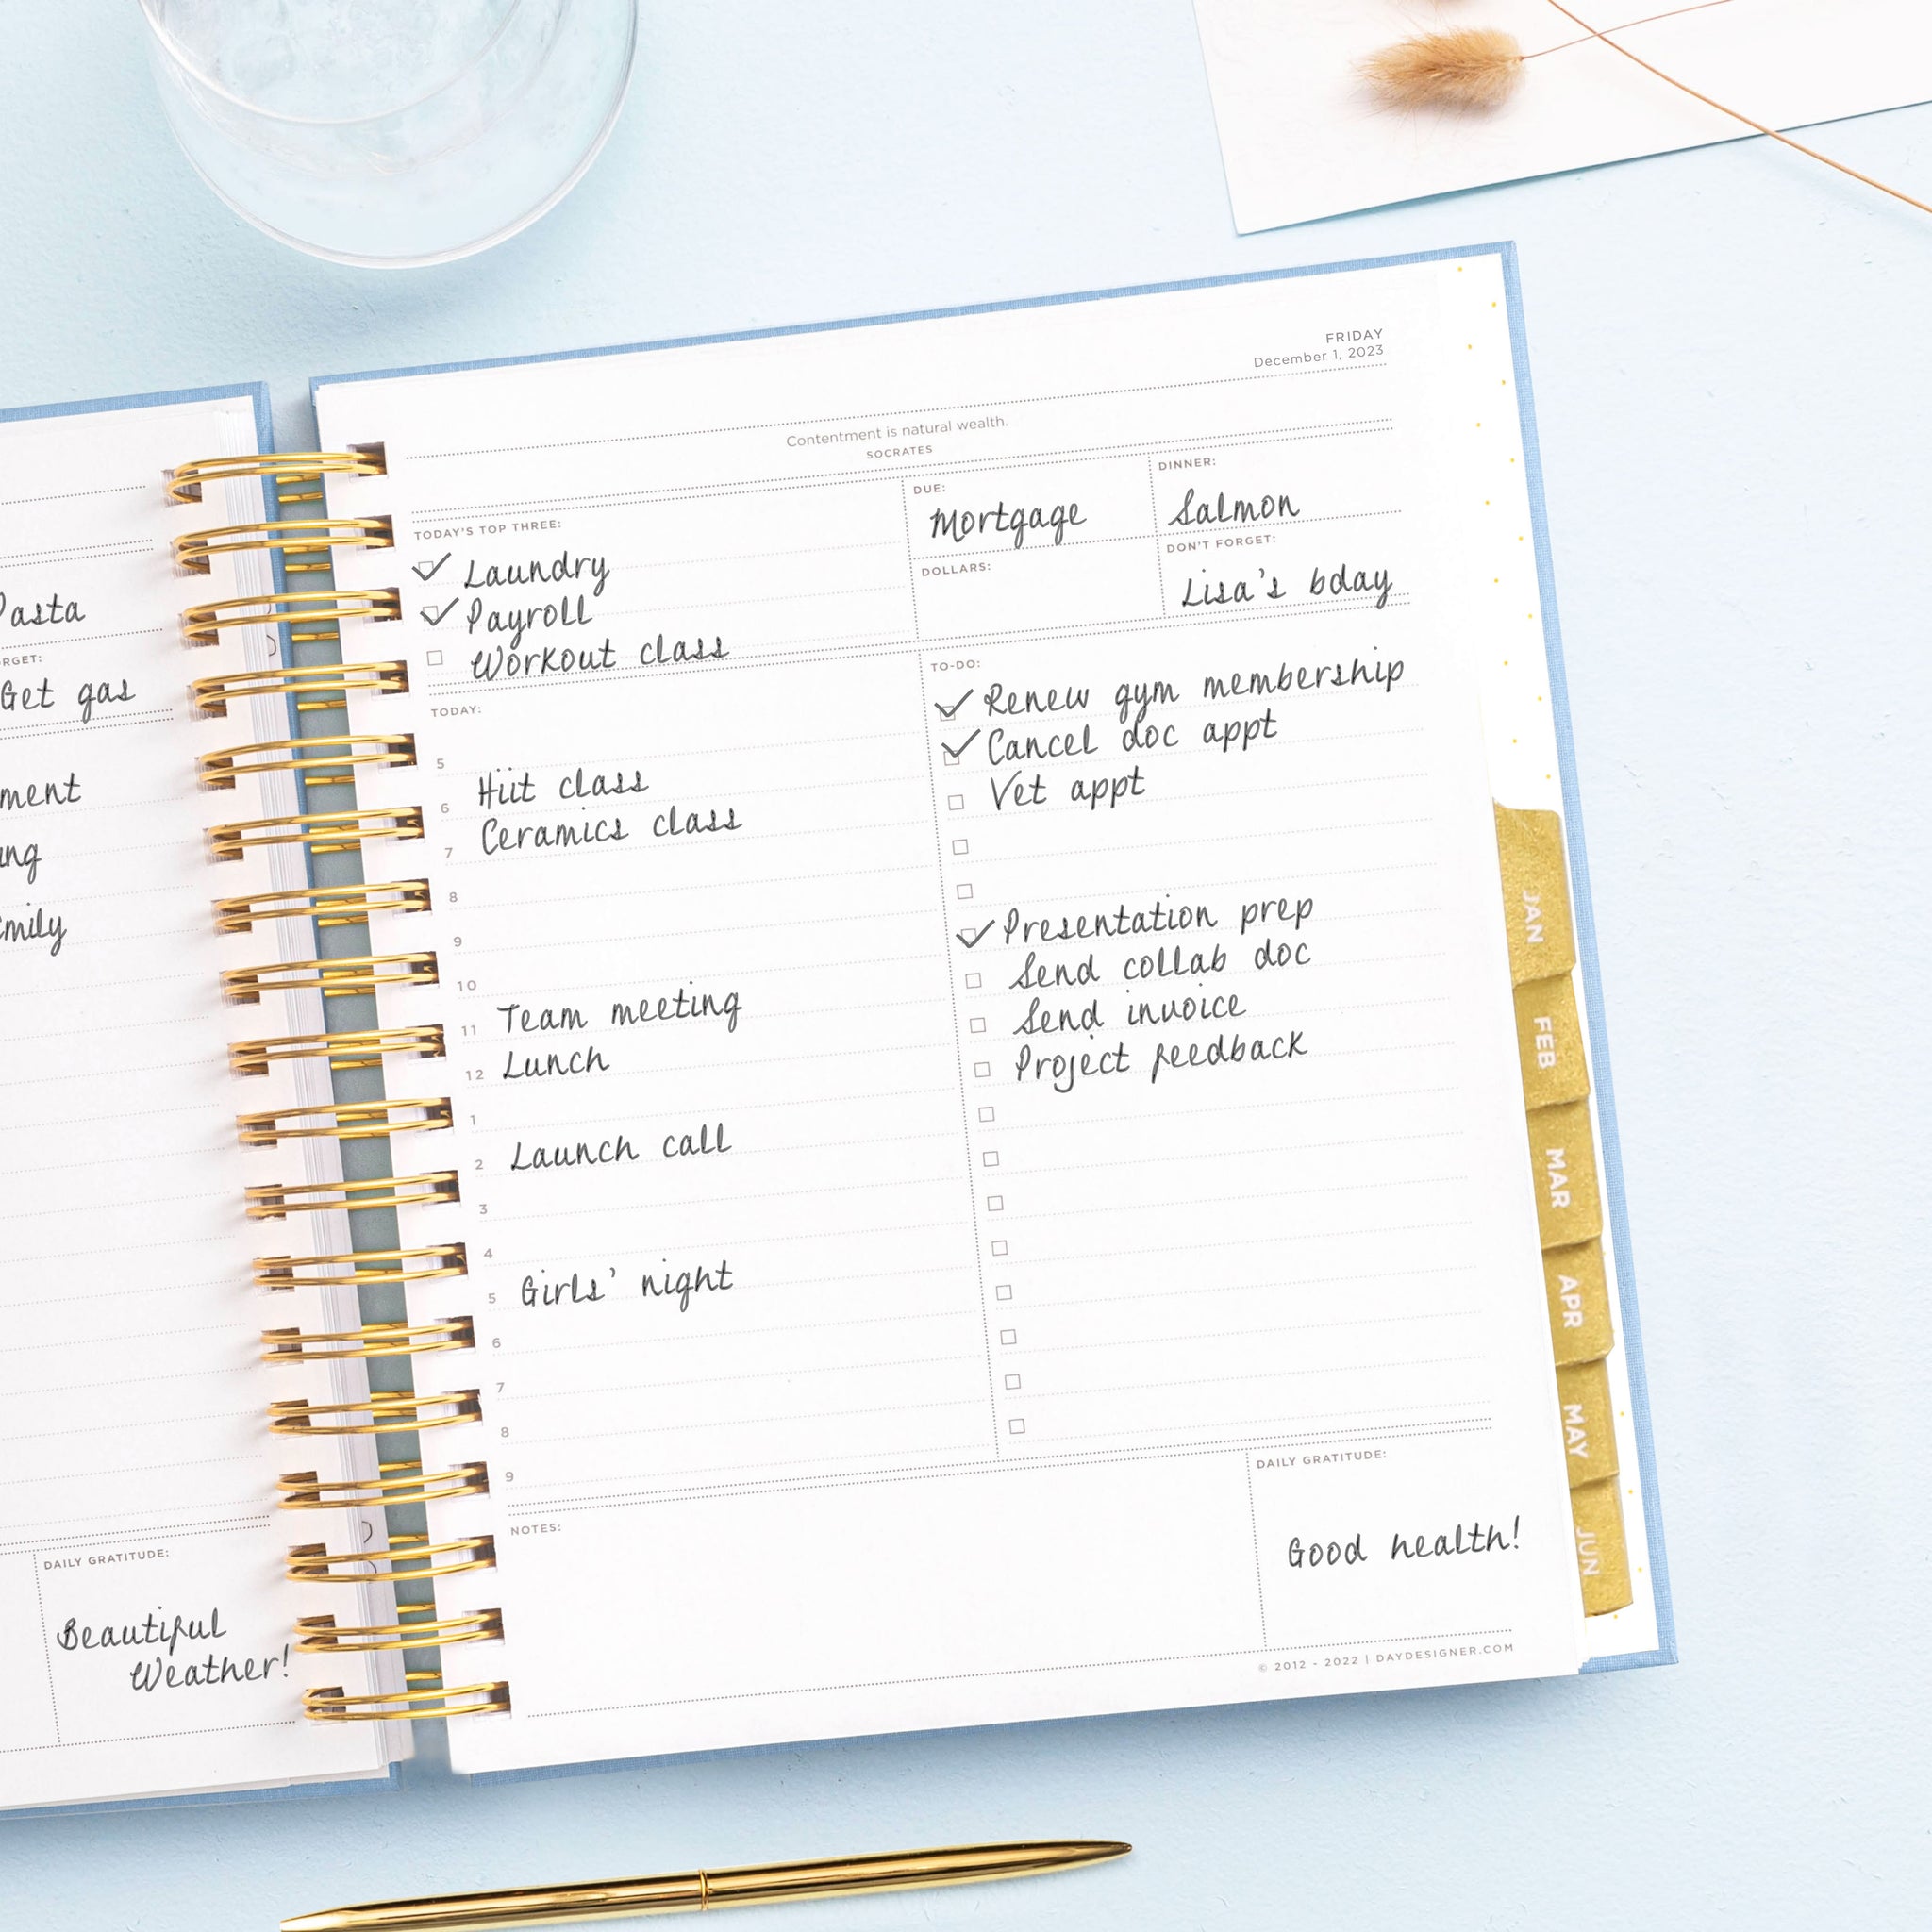 Pasta
RGET:
Get gas
ment
mily
DAILY GRATITUDE:
Beautiful
Weather!
FRIDAY
December 1, 2023
Contentment is natural wealth.
SOCRATES
TODAY'S TOP THREE:
Laundry
Payroll
Workout class
DUE:
Mortgage
DOLLARS:
DINNER:
Salmon
DON'T FORGET:
Lisa's bday
TODAY:
5
6 Hiit class
7 Ceramics class
8
9
10
11 Team meeting
12 Lunch
1
2 Launch call
3
4
5 Girls' night
6
7
8
9
TO-DO:
Renew gym membership
Cancel doc appt
Vet appt
Presentation prep
Send collab doc
Send invoice
Project feedback
NOTES:
DAILY GRATITUDE:
Good health!
© 2012 - 2022 | DAYDESIGNER.COM
JAN
FEB
MAR
APR
MAY
JUN